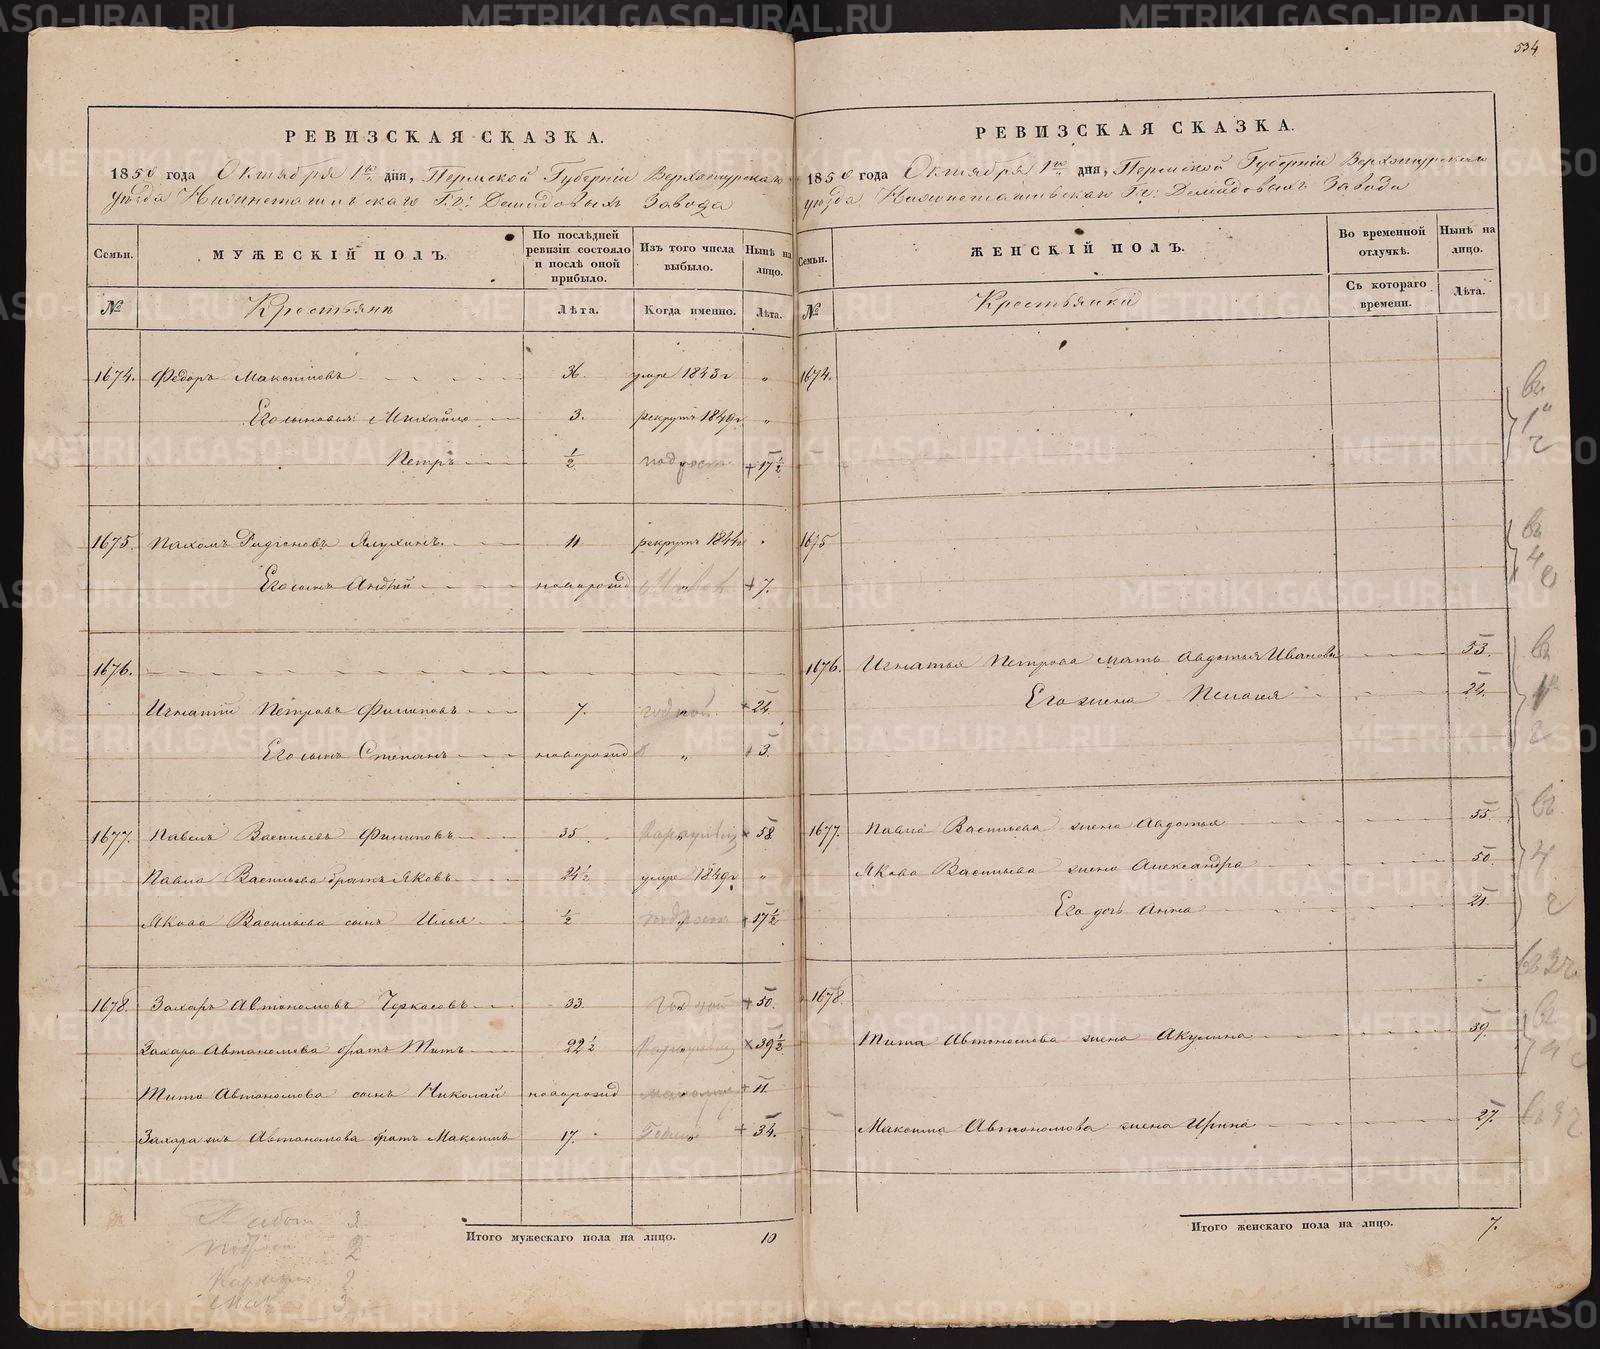 534
РЕВИЗСКАЯ СКАЗКА.
1850 года Октября 1го дня, Пермской Губерніи Верхотурскаго
уѣзда Нижнетагильскаго Гг: Демидовыхъ Завода
Семьи.
МУЖЕСКІЙ ПОЛЪ.
По послѣдней ревизіи состояло и послѣ оной прибыло.
Изъ того числа выбыло.
Нынѣ на лицо.
№
Крестьянъ
Лѣта.
Когда именно.
Лѣта.
1674. Федоръ Максимовъ 36. умре 1843г "
Его сыновья: Михайло 3. рекрутъ 1849г "
Петръ ½ подрост + 17½
1675. Пахомъ Родіоновъ 11 рекрутъ 1844г "
Его сынъ Андрей новорожд " + 7.
1676.
Игнатій Петровъ Филиповъ 7. годной + 24.
Его сынъ Степанъ новорожд " + 3.
1677. Павелъ Васильевъ Филиповъ 35 × 58
Павла Васильева братъ Яковъ 24½ умре 1849г "
Якова Васильева сынъ Илья ½ подрост + 17½
1678. Захаръ Автономовъ Черкасовъ 33. годной + 50.
Захара Автономова братъ Титъ 22½ × 39½
Тита Автономова сынъ Николай новорожд + 11
Захара жъ Автономова братъ Максимъ 17. Годной + 34.
Итого мужескаго пола на лицо. 10
3
подрост 2
2
мал 3
РЕВИЗСКАЯ СКАЗКА.
1850 года Октября 1го дня, Пермской Губерніи Верхотурскаго
уѣзда Нижнетагильскаго Гг: Демидовыхъ Завода
Семьи.
ЖЕНСКІЙ ПОЛЪ.
Во временной отлучкѣ.
Нынѣ на лицо.
№
Крестьянки
Съ котораго времени.
Лѣта.
1674.
1675
1676. Игнатья Петрова мать Авдотья Иванова 53.
Его жена Пелагея 24.
1677. Павла Васильева жена Авдотья 55.
Якова Васильева жена Александра 50
Его дочь Анна 21.
1678.
Тита Автономова жена Акулина 39.
Максима Автономова жена Ирина 27.
Итого женскаго пола на лицо. 7.
METRIKI.GASO-URAL.RU